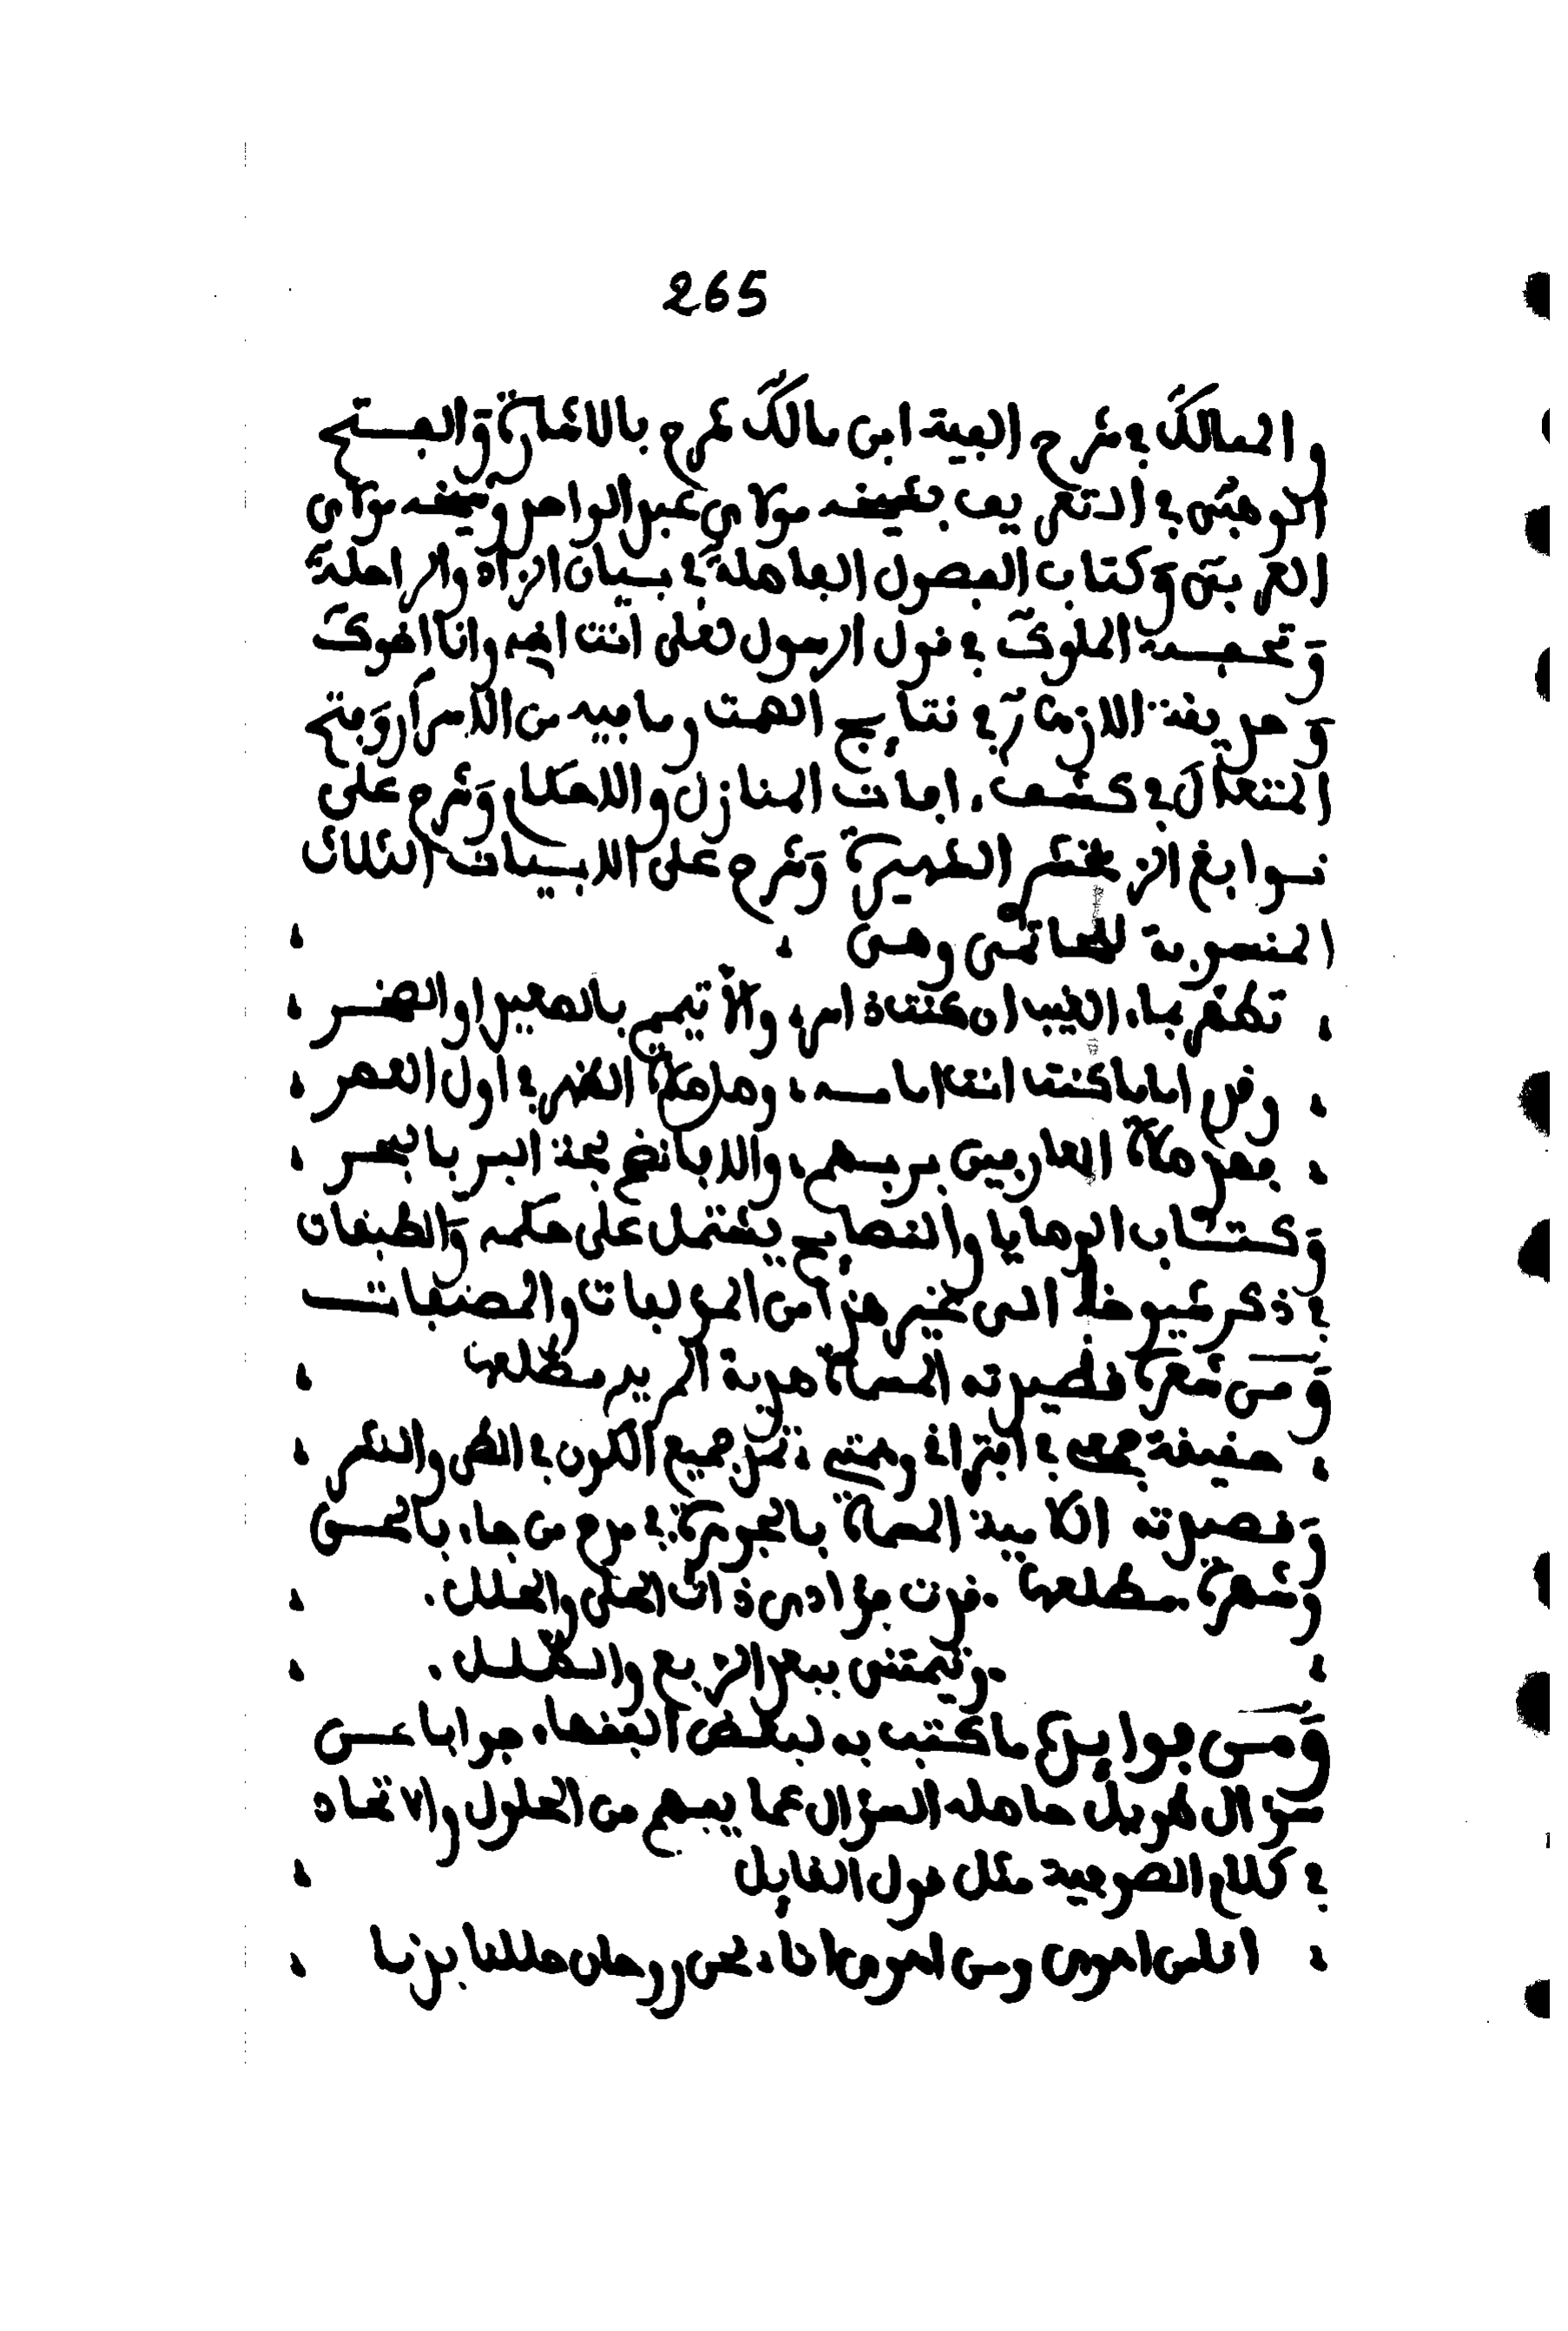 265
والمسالك في شرح الفية ابن مالك شرح بالاشارة والفتح
الوهبي في التعريف بشيخه مولاي عبد الواحد وشيخه مولاي
العربي وكتاب الفصول الفاصلة في بيان الزاد والراحلة
وتحفة الملوك في قول الرسول لعلي انت اخي وانا اخوك
وحديقة الازهار في نتايج الهمت وما فيه من الاسرار وفتح
المتعال في كشف امات المنازل والاحكام وشرح على
نوابغ الزمخشري الشهيرة وشرح على الابيات الثلاث
المنسوبة للحاتمي وهي
تطهر بماء الغيب ان كنت ذا سر والا تيمم بالصعيد او الصخر
وقدم اماما كنت انت امامه وصل صلاة الظهر في اول العصر
فهذه صلاة العارفين بربهم والا فانضح بحة البر بالبحر
وكتاب الوصايا والنصايح يشتمل على حكمه والطبقات
في ذكر شيوخه الى غير هذا من المولفات والمصنفات
ومن شعره قصيدته المسماة هدية المريد مطلعها
حقيقة جمعي في افتراقي وهمتي تمد جميع الكون في الطي والنشر
وقصيدته اللامية المسماة بالجوهرة في مدح من جاء بالحسن
وشعره مطلعها قرت فؤادي ذات الحلي والحلل
وتيمتني ببعد الربع والطلل
ومن جوابه ما كتب به لبعض الفقهاء جوابا عن
سؤال طويل حاصله السؤال عما يفهم من الحلول والاتحاد
في كلام الصوفية مثل قول القايل
انا من اهوى ومن اهوى انا نحن روحان حللنا بدنا